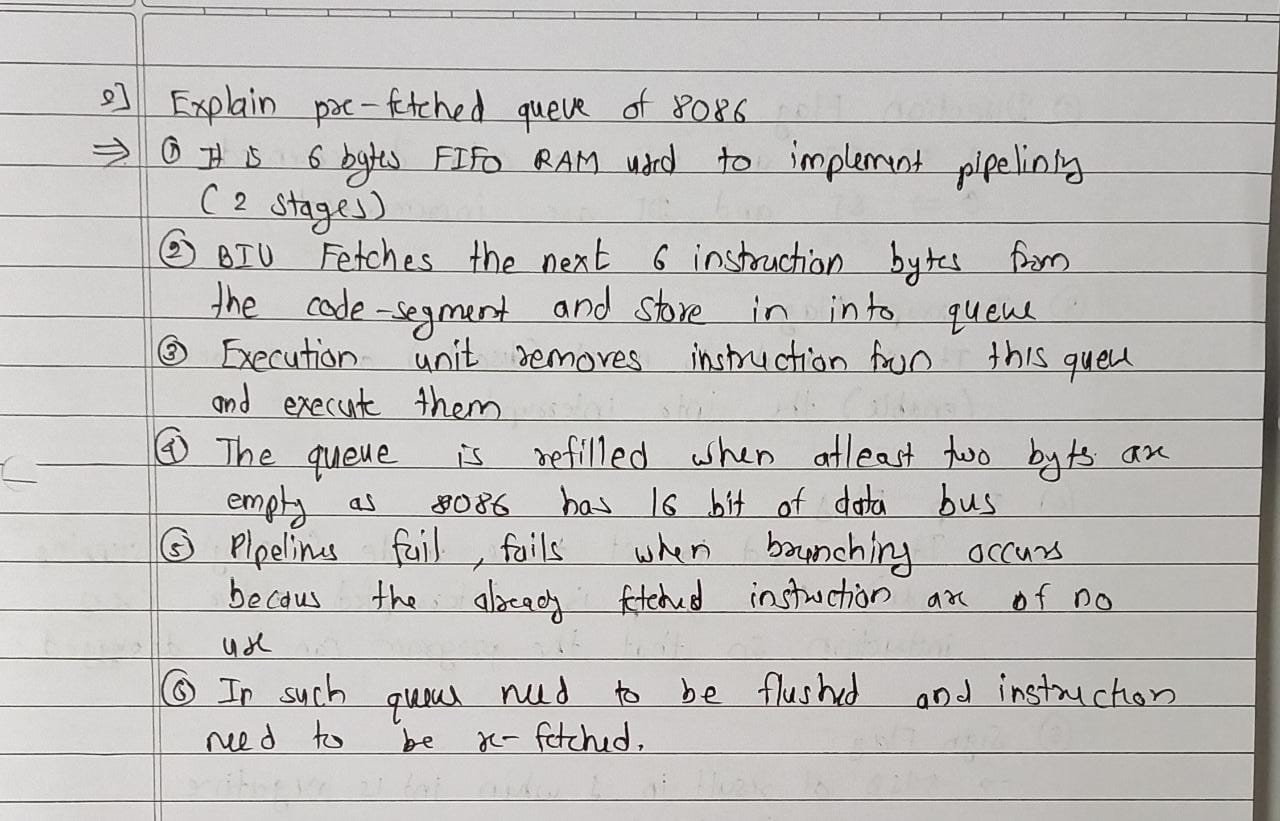 e] Explain pre-fetched queue of 8086
⇒ ① It is 6 bytes FIFO RAM used to implement pipelining
( 2 stages)
② BIU Fetches the next 6 instruction bytes from
the code-segment and store in into queue
③ Execution unit removes instruction from this queue
and execute them
④ The queue is refilled when atleast two bytes are
empty as 8086 has 16 bit of data bus
⑤ Pipelines fail , fails when branching occurs
becaus the already fetched instruction are of no
use
⑥ In such queue need to be flushed and instruction
need to be re-fetched.